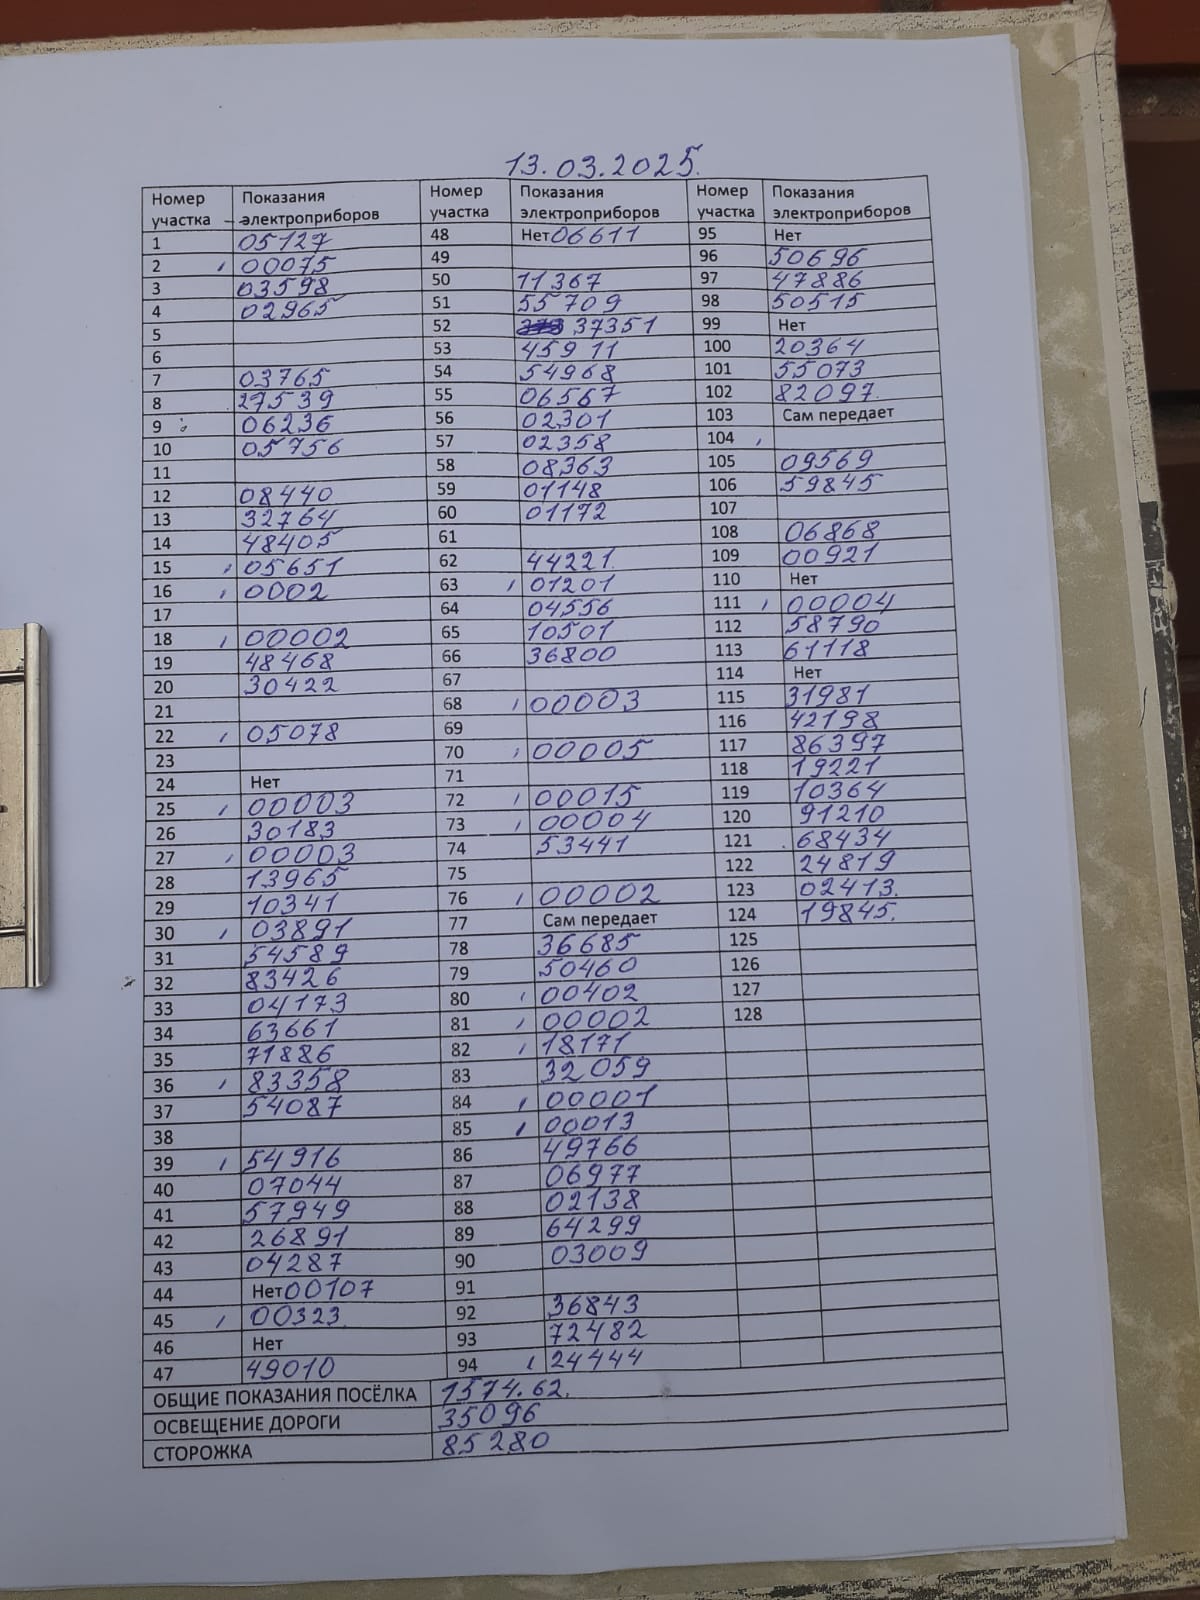 13.03.2025.
Номер участка Показания электроприборов Номер участка Показания электроприборов Номер участка Показания электроприборов
1 05127 48 Нет 06611 95 Нет
2 00075 49 96 50696
3 03598 50 11367 97 47886
4 02965 51 55709 98 50515
5 52 37351 99 Нет
6 53 45911 100 20364
7 03765 54 54968 101 55073
8 27539 55 06567 102 82097.
9 06236 56 02301 103 Сам передает
10 05756 57 02358 104
11 58 08363 105 09569
12 08440 59 01148 106 59845
13 32764 60 01172 107
14 48405 61 108 06868
15 05651 62 44221. 109 00921
16 0002 63 01201 110 Нет
17 64 04556 111 00004
18 00002 65 10501 112 58790
19 48468 66 36800 113 61118
20 30422 67 114 Нет
21 68 00003 115 31981
22 05078 69 116 42198
23 70 00005 117 86397
24 Нет 71 118 19221
25 00003 72 00015 119 10364
26 30183 73 00004 120 91210
27 00003 74 53441 121 68434
28 13965 75 122 24819
29 10341 76 00002 123 02413.
30 03891 77 Сам передает 124 19845.
31 54589 78 36685 125
32 83426 79 50460 126
33 04173 80 00402 127
34 63661 81 00002 128
35 71886 82 18171
36 83358 83 32059
37 54087 84 00001
38 85 00013
39 54916 86 49766
40 07044 87 06977
41 57949 88 02138
42 26891 89 64299
43 04287 90 03009
44 Нет 00107 91
45 00323. 92 36843
46 Нет 93 72482
47 49010 94 24444
ОБЩИЕ ПОКАЗАНИЯ ПОСЁЛКА 1574.62.
ОСВЕЩЕНИЕ ДОРОГИ 35096
СТОРОЖКА 85280